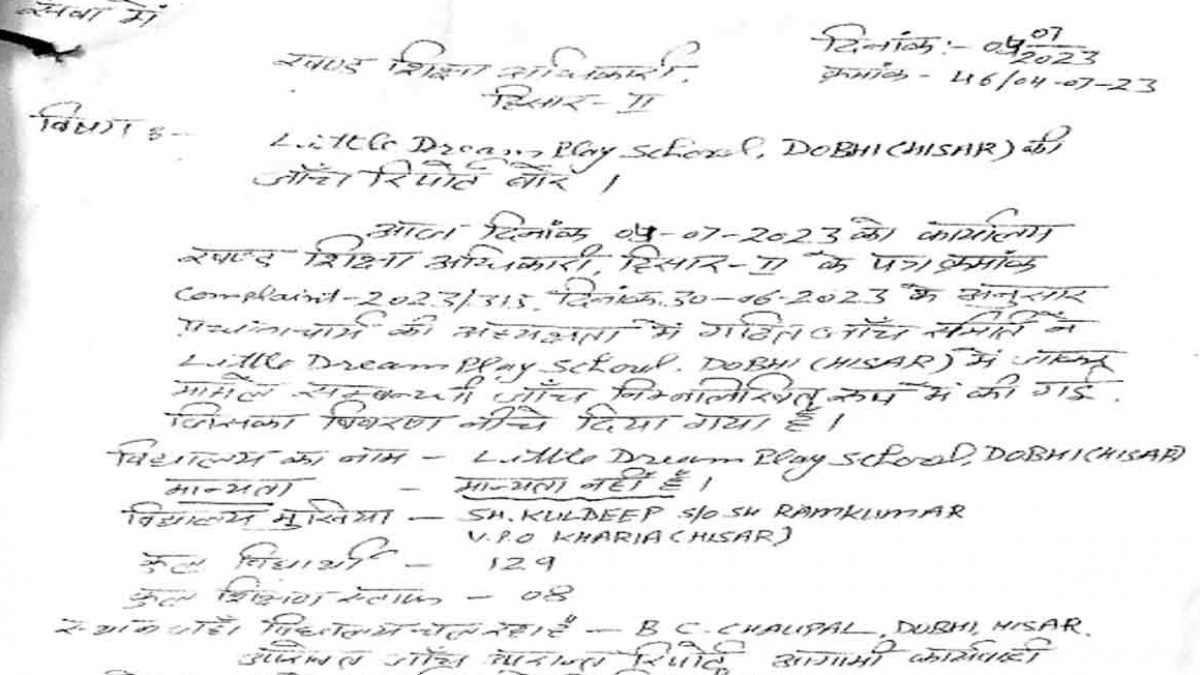 सेवा में
दिनांक:- 04/07/2023
खण्ड शिक्षा अधिकारी,
क्रमांक - 46/04-07-23
हिसार-II
विषय :-
Little Dream Play School, DOBHI (HISAR) की
जाँच रिपोर्ट बारे ।
आज दिनांक 04-07-2023 को कार्यालय
खण्ड शिक्षा अधिकारी, हिसार-II के पत्र क्रमांक
Complaint-2023/315, दिनांक 30-06-2023 के अनुसार
प्रधानाचार्य की अध्यक्षता में गठित जाँच समिति ने
Little Dream Play School, DOBHI (HISAR) में जाकर
मामले सम्बन्धी जाँच निम्नलिखित रूप में की गई
जिसका विवरण नीचे दिया गया है ।
विद्यालय का नाम - Little Dream Play School, DOBHI (HISAR)
मान्यता - मान्यता नहीं है ।
विद्यालय मुखिया - SH. KULDEEP S/O SH RAMKUMAR
V.P.O KHARIA (HISAR)
कुल विद्यार्थी - 129
कुल शिक्षण स्टाफ - 08
स्थान जहाँ विद्यालय चल रहा है - B C. CHAUPAL, DOBHI, HISAR.
उपरोक्त जाँच उपरान्त रिपोर्ट आगामी कार्यवाही